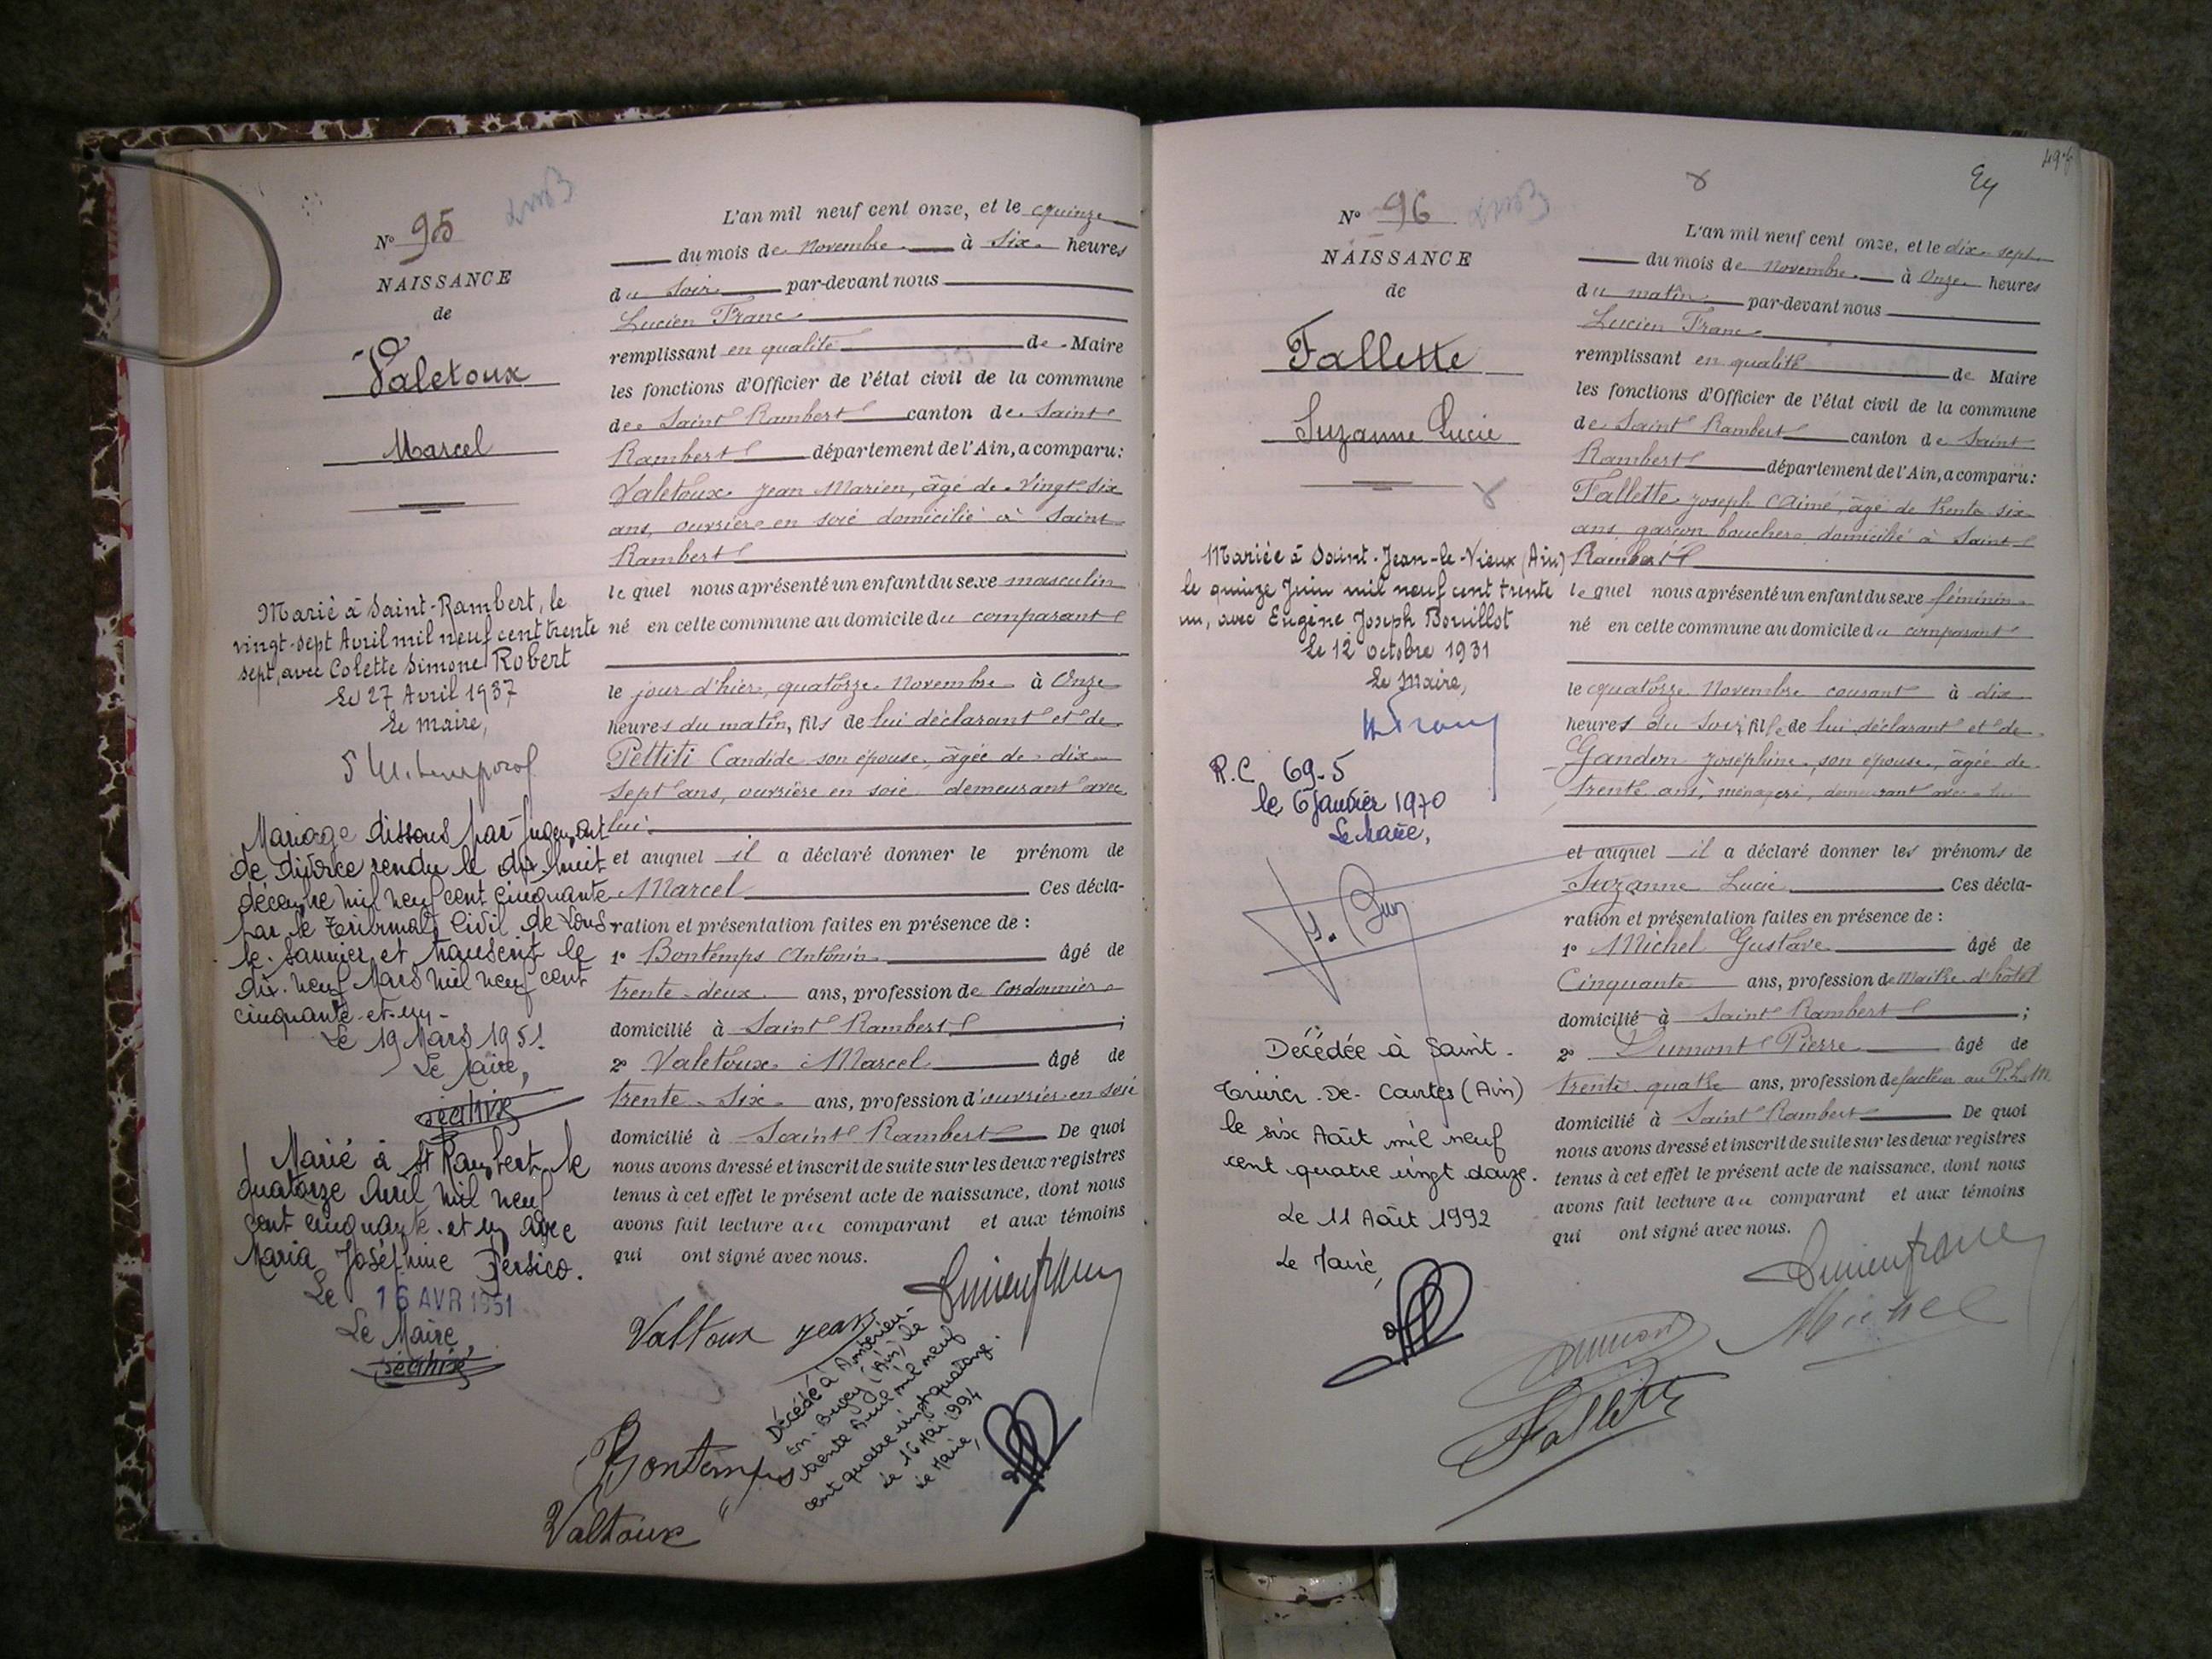 N° 95
NAISSANCE
de
Valetoux
Marcel
Marié à Saint-Rambert, le
vingt-sept Avril mil neuf cent trente
sept, avec Colette Simone Robert
Le 27 Avril 1937
Le maire,
Mariage dissous par jugement
de divorce rendu le dix huit
décembre mil neuf cent cinquante
par le Tribunal Civil de Lons
le-Saunier et transcrit le
dix-neuf Mars mil neuf cent
cinquante-et-un-
Le 19 Mars 1951
Le Maire,
Marié à St Rambert, le
quatorze Avril mil neuf
cent cinquante-et-un avec
Maria Joséphine Persico.
Le 16 AVR 1951
Le Maire,
L'an mil neuf cent onze, et le quinze
du mois de Novembre à Six heures
du Soir par-devant nous
Lucien Franc
remplissant en qualité de Maire
les fonctions d'Officier de l'état civil de la commune
de Saint Rambert canton de Saint
Rambert département de l'Ain, a comparu:
Valetoux Jean Marien, âgé de Vingt six
ans, ouvrier en soie domicilié à Saint
Rambert
lequel nous a présenté un enfant du sexe masculin
né en cette commune au domicile du comparant
le jour d'hier, quatorze Novembre à Onze
heures du matin, fils de lui déclarant et de
Pettiti Candide son épouse, âgée de dix
sept ans, ouvrière en soie demeurant avec
lui.
et auquel il a déclaré donner le prénom de
Marcel Ces décla-
ration et présentation faites en présence de :
1° Bontemps Antonin âgé de
trente-deux ans, profession de Cordonnier
domicilié à Saint Rambert ;
2° Valetoux Marcel âgé de
trente-six ans, profession d'ouvrier en soie
domicilié à Saint Rambert De quoi
nous avons dressé et inscrit de suite sur les deux registres
tenus à cet effet le présent acte de naissance, dont nous
avons fait lecture au comparant et aux témoins
qui ont signé avec nous.
Lucien franc
Valtoux jean
Décédé à Ambérieu-
en-Bugey (Ain) le
trente Avril mil neuf
cent quatre vingt quatorze.
Le 16 Mai 1994
Le Maire,
Bontemps
Valtoux
N° 96
NAISSANCE
de
Fallette
Suzanne Lucie
Mariée à Saint-Jean-le-Vieux (Ain)
le quinze Juin mil neuf cent trente
un, avec Eugène Joseph Bouillot
Le 12 octobre 1931
Le Maire,
R.C 69-5
le 6 Janvier 1970
Le Maire,
Décédée à Saint-
Trivier-De-Courtes (Ain)
le six Août mil neuf
cent quatre vingt douze.
Le 11 Août 1992
Le Maire,
L'an mil neuf cent onze, et le dix-sept
du mois de Novembre à Onze heures
du matin par-devant nous
Lucien Franc
remplissant en qualité de Maire
les fonctions d'Officier de l'état civil de la commune
de Saint Rambert canton de Saint
Rambert département de l'Ain, a comparu:
Fallette Joseph Aimé, âgé de trente six
ans garçon boucher domicilié à Saint
Rambert
lequel nous a présenté un enfant du sexe féminin
né en cette commune au domicile du comparant
le quatorze Novembre courant à dix
heures du Soir, fille de lui déclarant et de
Gandon Joséphine, son épouse, âgée de
trente ans, ménagère, demeurant avec lui
et auquel il a déclaré donner les prénoms de
Suzanne Lucie Ces décla-
ration et présentation faites en présence de :
1° Michel Gustave âgé de
Cinquante ans, profession de Maître d'hôtel
domicilié à Saint Rambert ;
2° Dumont Pierre âgé de
trente-quatre ans, profession de facteur au P.L.M
domicilié à Saint Rambert De quoi
nous avons dressé et inscrit de suite sur les deux registres
tenus à cet effet le présent acte de naissance, dont nous
avons fait lecture au comparant et aux témoins
qui ont signé avec nous.
Lucien franc
Michel
Dumont
Fallette